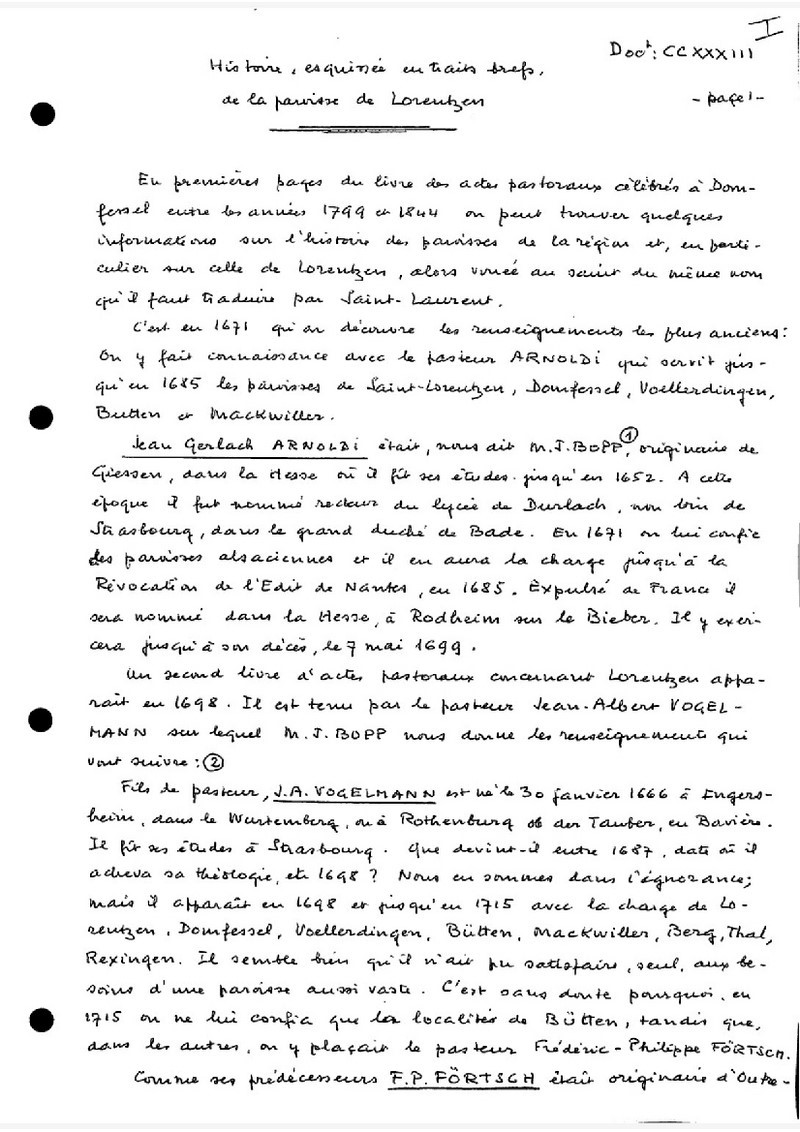 I
Doct: CCXXXIII
Histoire, esquissée en traits brefs,
de la paroisse de Lorentzen
- page 1 -
En premières pages du livre des actes pastoraux célébrés à Dom-
fessel entre les années 1799 et 1844 on peut trouver quelques
informations sur l'histoire des paroisses de la région et, en parti-
culier sur celle de Lorentzen, alors vouée au saint du même nom
qu'il faut traduire par Saint-Laurent.
C'est en 1671 qu'on découvre les renseignements les plus anciens:
On y fait connaissance avec le pasteur ARNOLDI qui servit jus-
qu'en 1685 les paroisses de Saint-Lorentzen, Domfessel, Voellerdingen,
Butten et Mackwiller.
Jean Gerlach ARNOLDI était, nous dit M.J.BOPP, ① originaire de
Giessen, dans la Hesse où il fit ses études jusqu'en 1652. A cette
époque il fut nommé recteur du lycée de Durlach, non loin de
Strasbourg, dans le grand duché de Bade. En 1671 on lui confie
des paroisses alsaciennes et il en aura la charge jusqu'à la
Révocation de l'Edit de Nantes, en 1685. Expulsé de France il
sera nommé dans la Hesse, à Rodheim sur le Bieber. Il y exer-
cera jusqu'à son décès, le 7 mai 1699.
Un second livre d'actes pastoraux concernant Lorentzen appa-
raît en 1698. Il est tenu par le pasteur Jean-Albert VOGEL-
MANN sur lequel M.J.BOPP nous donne les renseignements qui
vont suivre: ②
Fils de pasteur, J.A. VOGELMANN est né le 30 janvier 1666 à Engers-
heim, dans le Wurtemberg, ou à Rothenburg ob der Tauber, en Bavière.
Il fit ses études à Strasbourg. Que devint-il entre 1687, date où il
acheva sa théologie, et 1698 ? Nous en sommes dans l'ignorance;
mais il apparaît en 1698 et jusqu'en 1715 avec la charge de Lo-
rentzen, Domfessel, Voellerdingen, Bütten, Mackwiller, Berg, Thal,
Rexingen. Il semble bien qu'il n'ait pu satisfaire, seul, aux be-
soins d'une paroisse aussi vaste. C'est sans doute pourquoi, en
1715 on ne lui confia que les localités de Bütten, tandis que,
dans les autres, on y plaçait le pasteur Frédéric-Philippe FÖRTSCH.
Comme ses prédécesseurs F.P. FÖRTSCH était originaire d'Outre-